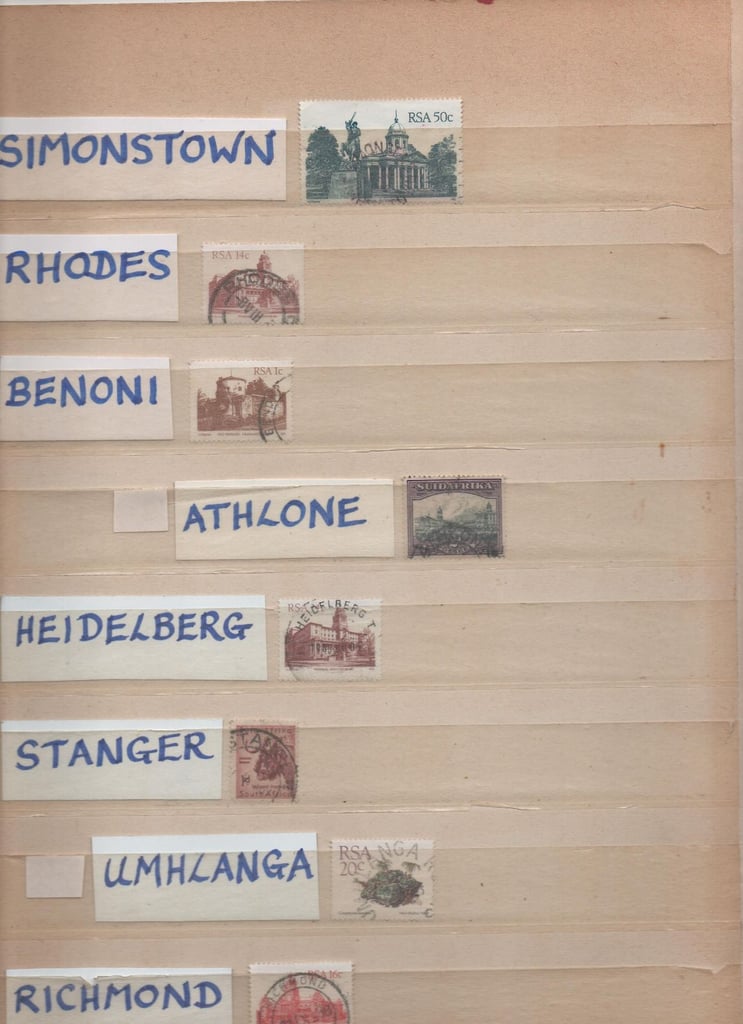 SIMONSTOWN
RSA 50c
RHODES
RSA 14c
RHODES
BENONI
RSA 1c
ATHLONE
SUIDAFRIKA
HEIDELBERG
RS
HEIDELBERG T
STANGER
STAN
South Africa
UMHLANGA
RSA
20c
ANGA R
RICHMOND
RSA 16c
RICHMOND